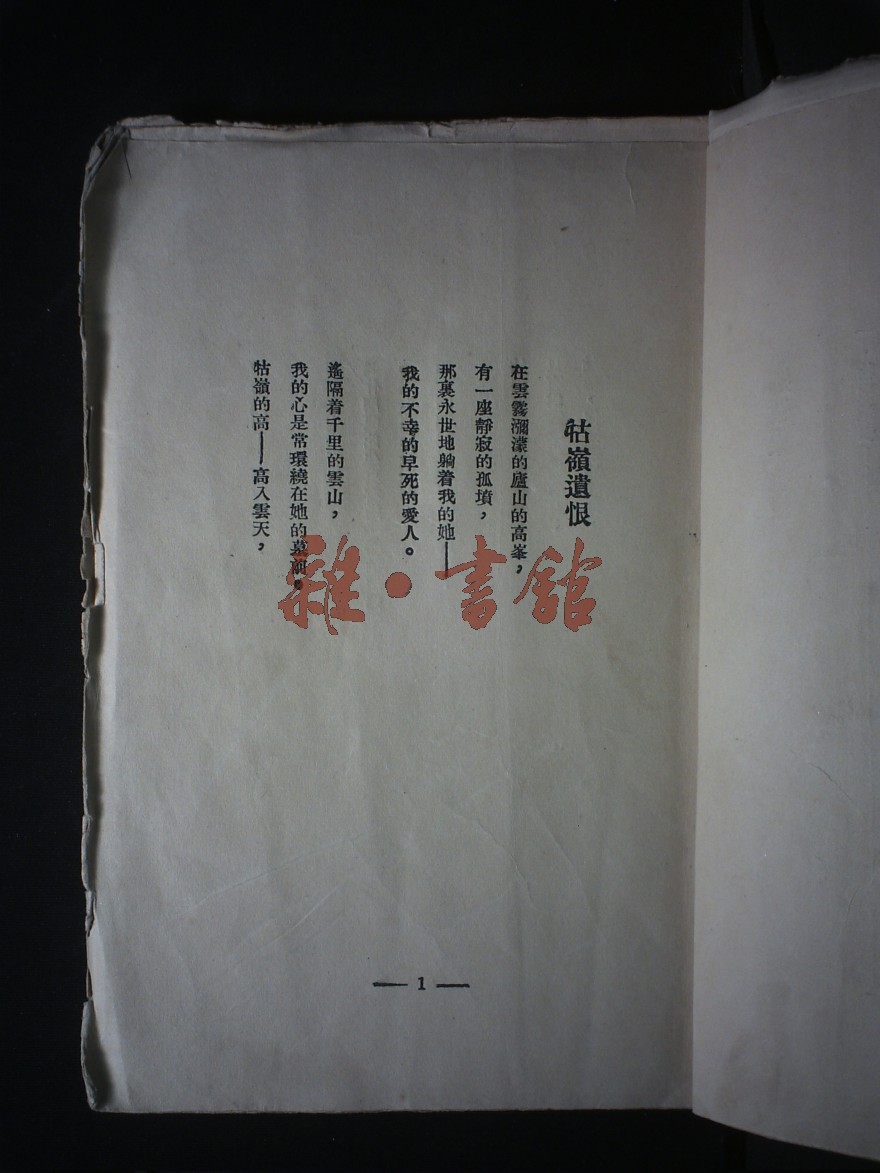 牯嶺遺恨
在雲霧瀰濛的廬山的高峯，
有一座靜寂的孤墳，
那裏永世地躺着我的她——
我的不幸的早死的愛人。
遙隔着千里的雲山，
我的心是常環繞在她的墓前。
牯嶺的高——高入雲天，
雜·書館
— 1 —